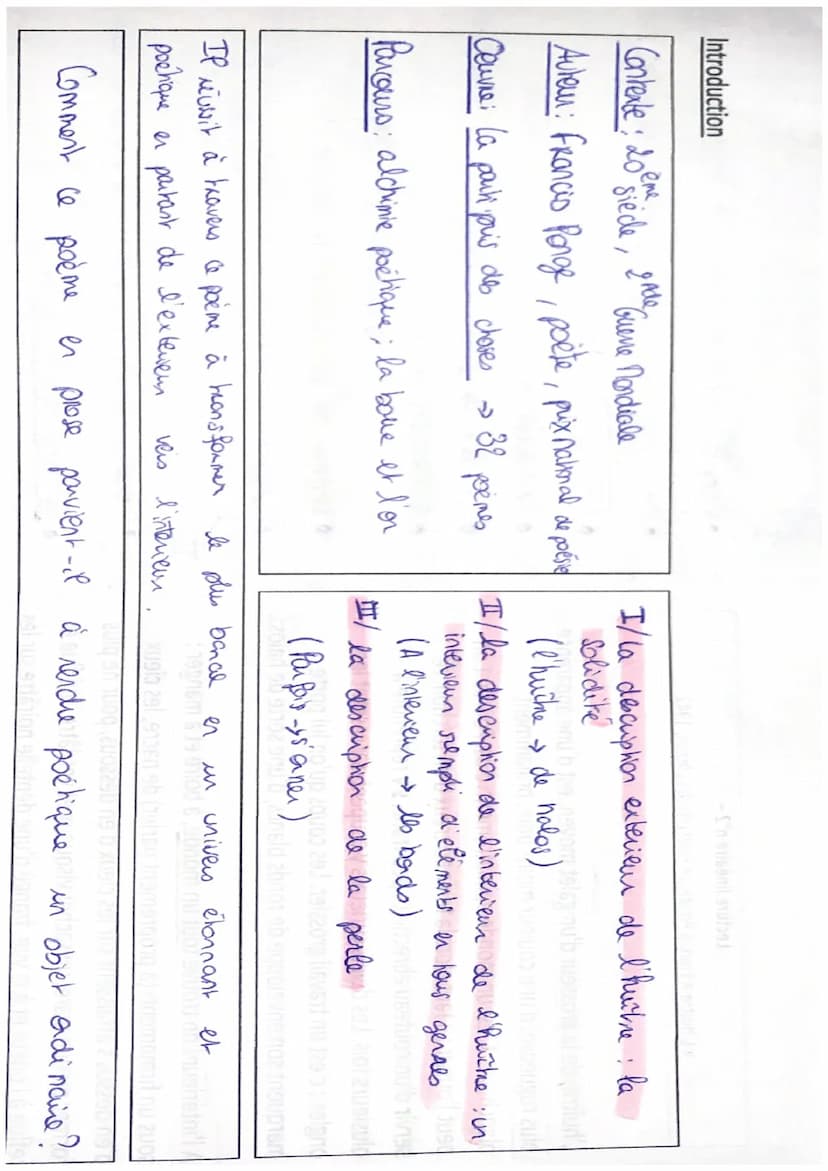 Introduction
Contexte : 20ème siècle, 2nde Guerre Mondiale
Auteur : Francis Ponge, poète, prix national de poésie
Oeuvre : la parti pris des choses → 32 poèmes
Parcours : alchimie poétique ; la boue et l'or
I/ La description extérieur de l'huître : la
solidité
(l'huître → de halos)
II/ la description de l'intérieur de l'huître : un
intérieur rempli d'éléments en tous genres
(A l'intérieur → les bords)
III/ la description de la perle
(Parfois → s'orner)
Il réussit à travers ce poème à transformer le plus banal en un univers étonnant et
poétique en partant de l'extérieur vers l'intérieur.
Comment ce poème en prose parvient-il à rendre poétique un objet ordinaire ?